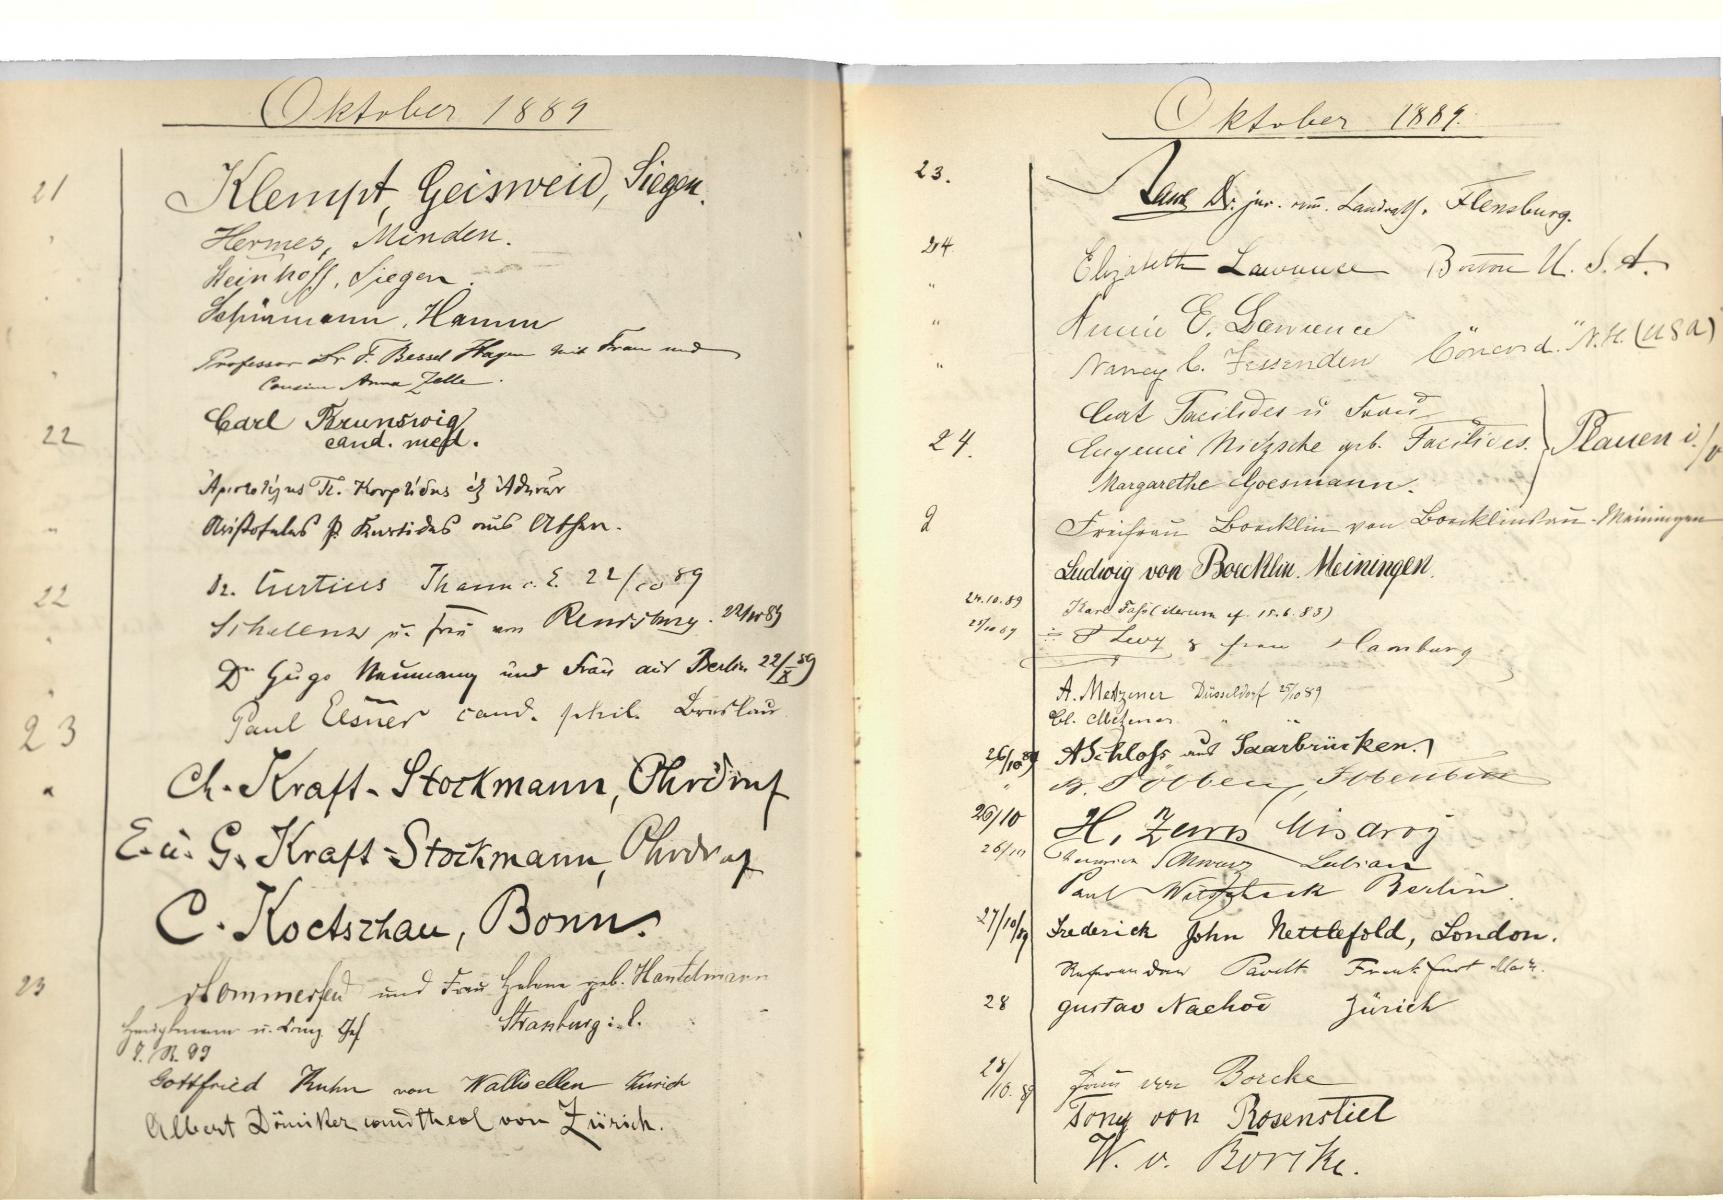 Oktober 1889
21 Klempt, Geisweid, Siegen.
Hermes, Minden.
Steinhoff, Siegen.
Schürmann, Hamm
Professor Dr F. Bessel Hagen mit Frau und
Cousine Anna Zelle.
22 Carl Brunswig
cand. med.
Ἀριστοτέλης Π. Κουρτίδης ἐξ Ἀθηνῶν
Aristoteles P. Kurtidis aus Athen.
22 Dr. Curtius Thann i. E. 22/10 89
u. Frau von Rendsburg. 22/10 89
Dr Hugo Neumann und Frau aus Berlin 22/X 89
23 Paul Elsner cand. phil. Breslau
" Ch. Kraft-Stockmann, Ohrdruf
E. u. G. Kraft-Stockmann, Ohrdruf
C. Koetschau, Bonn.
23 und Frau Helene geb. Hantelmann
Hauptmann u. Comp. Chef Strassburg i. E.
I. R. 99
Gottfried Kuhn von Wallisellen Zürich
Albert Däniker cand theol von Zürich.
Oktober 1889.
23. Dr. jur. Landrath. Flensburg.
24. Elizabeth Lawrence Boston U. S. A.
" Annie E. Lawrence
" Nancy C. Fessenden "Concord." N.H. (USA)
Curt Facilides u Frau
24. Eugenie Nietzsche geb. Facilides. Plauen i./V
Margarethe Goesmann.
Freifrau Boecklin von Boecklinsau-Meiningen
Ludwig von Boecklin. Meiningen.
24.10.89 Karl (iterum cf. 15.6.83)
25/10 89 Levy & Frau Hamburg
A. Metzener Düsseldorf 25/10 89
Cl. Metzener " "
26/10 89 A Schloss aus Saarbrücken.
"
26/10 H. Misdroy
26/10 Schwarz
Paul Berlin.
27/10/89 Frederick John Nettlefold, London.
Referendar Frankfurt Main.
28 Gustav Nachod Zürich
28/10. 89 Frau von Borcke
Tony von Rosenstiel
W. v. Borcke.